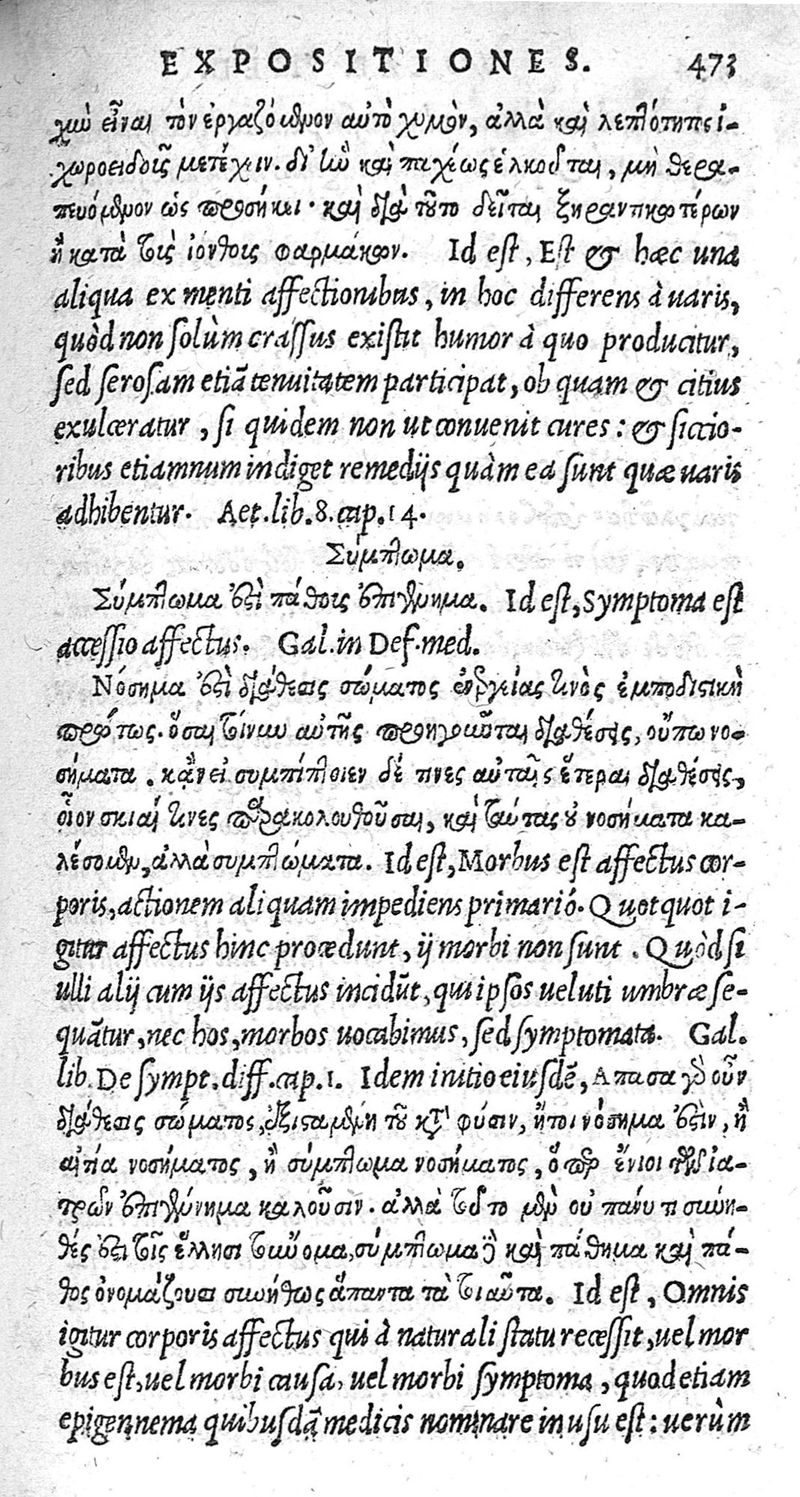 EXPOSITIONES. 473
χὺν εἶναι τὸν ἐργαζόμενον αὐτὸ χυμὸν, ἀλλὰ καὶ λεπτότητος ἰ-
χωροειδοῦς μετέχειν. δι' ἣν καὶ ταχέως ἑλκοῦται, μὴ θερα-
πευόμενον ὡς προσήκει· καὶ διὰ τοῦτο δεῖται ξηραντικωτέρων
ἢ κατὰ τοὺς ἰόνθους φαρμάκων. Id est, Est & hæc una
aliqua ex menti affectionibus, in hoc differens à uaris,
quòd non solùm crassus existit humor à quo producitur,
sed serosam etiã tenuitatem participat, ob quam & citius
exulceratur, si quidem non ut conuenit cures: & siccio-
ribus etiamnum indiget remedijs quàm ea sunt quæ uaris
adhibentur. Aet. lib. 8. cap. 14.
Σύμπτωμα.
Σύμπτωμα ἐστὶ πάθους ἐπιγέννημα. Id est, Symptoma est
accessio affectus. Gal. in Def. med.
Νόσημα ἐστὶ διάθεσις σώματος ἐνεργείας τινὸς ἐμποδιστικὴ
πρώτως. ὅσαι τοίνυν αὐτῆς προηγοῦνται διαθέσεις, οὔπω νο-
σήματα. κᾂν εἰ συμπίπτοιεν δέ τινες αὐταῖς ἕτεραι διαθέσεις,
οἷον σκιαί τινες παρακολουθοῦσαι, καὶ ταύτας οὐ νοσήματα κα-
λέσομεν, ἀλλὰ συμπτώματα. Id est, Morbus est affectus cor-
poris, actionem aliquam impediens primariò. Quotquot i-
gitur affectus hinc procedunt, ij morbi non sunt. Quòd si
ulli alij cum ijs affectus incidũt, qui ipsos ueluti umbræ se-
quãtur, nec hos, morbos uocabimus, sed symptomata. Gal.
lib. De sympt. diff. cap. 1. Idem initio eiusdẽ, Απασα γὰρ οὖν
διάθεσις σώματος, ἐξισταμένη τοῦ κατὰ φύσιν, ἤτοι νόσημα ἐστὶν, ἢ
αἰτία νοσήματος, ἢ σύμπτωμα νοσήματος, ὅπερ ἔνιοι τῶν ἰα-
τρῶν ἐπιγέννημα καλοῦσιν. ἀλλὰ τοῦτο μὲν οὐ πάνυ τι σύνη-
θές ἐστι τοῖς ἕλλησι τοὔνομα, σύμπτωμα δὲ καὶ πάθημα καὶ πά-
θος ὀνομάζουσι συνήθως ἅπαντα τὰ τοιαῦτα. Id est, Omnis
igitur corporis affectus qui à naturali statu recessit, uel mor
bus est, uel morbi causa, uel morbi symptoma, quod etiam
epigennema quibusdã medicis nominare in usu est: uerùm